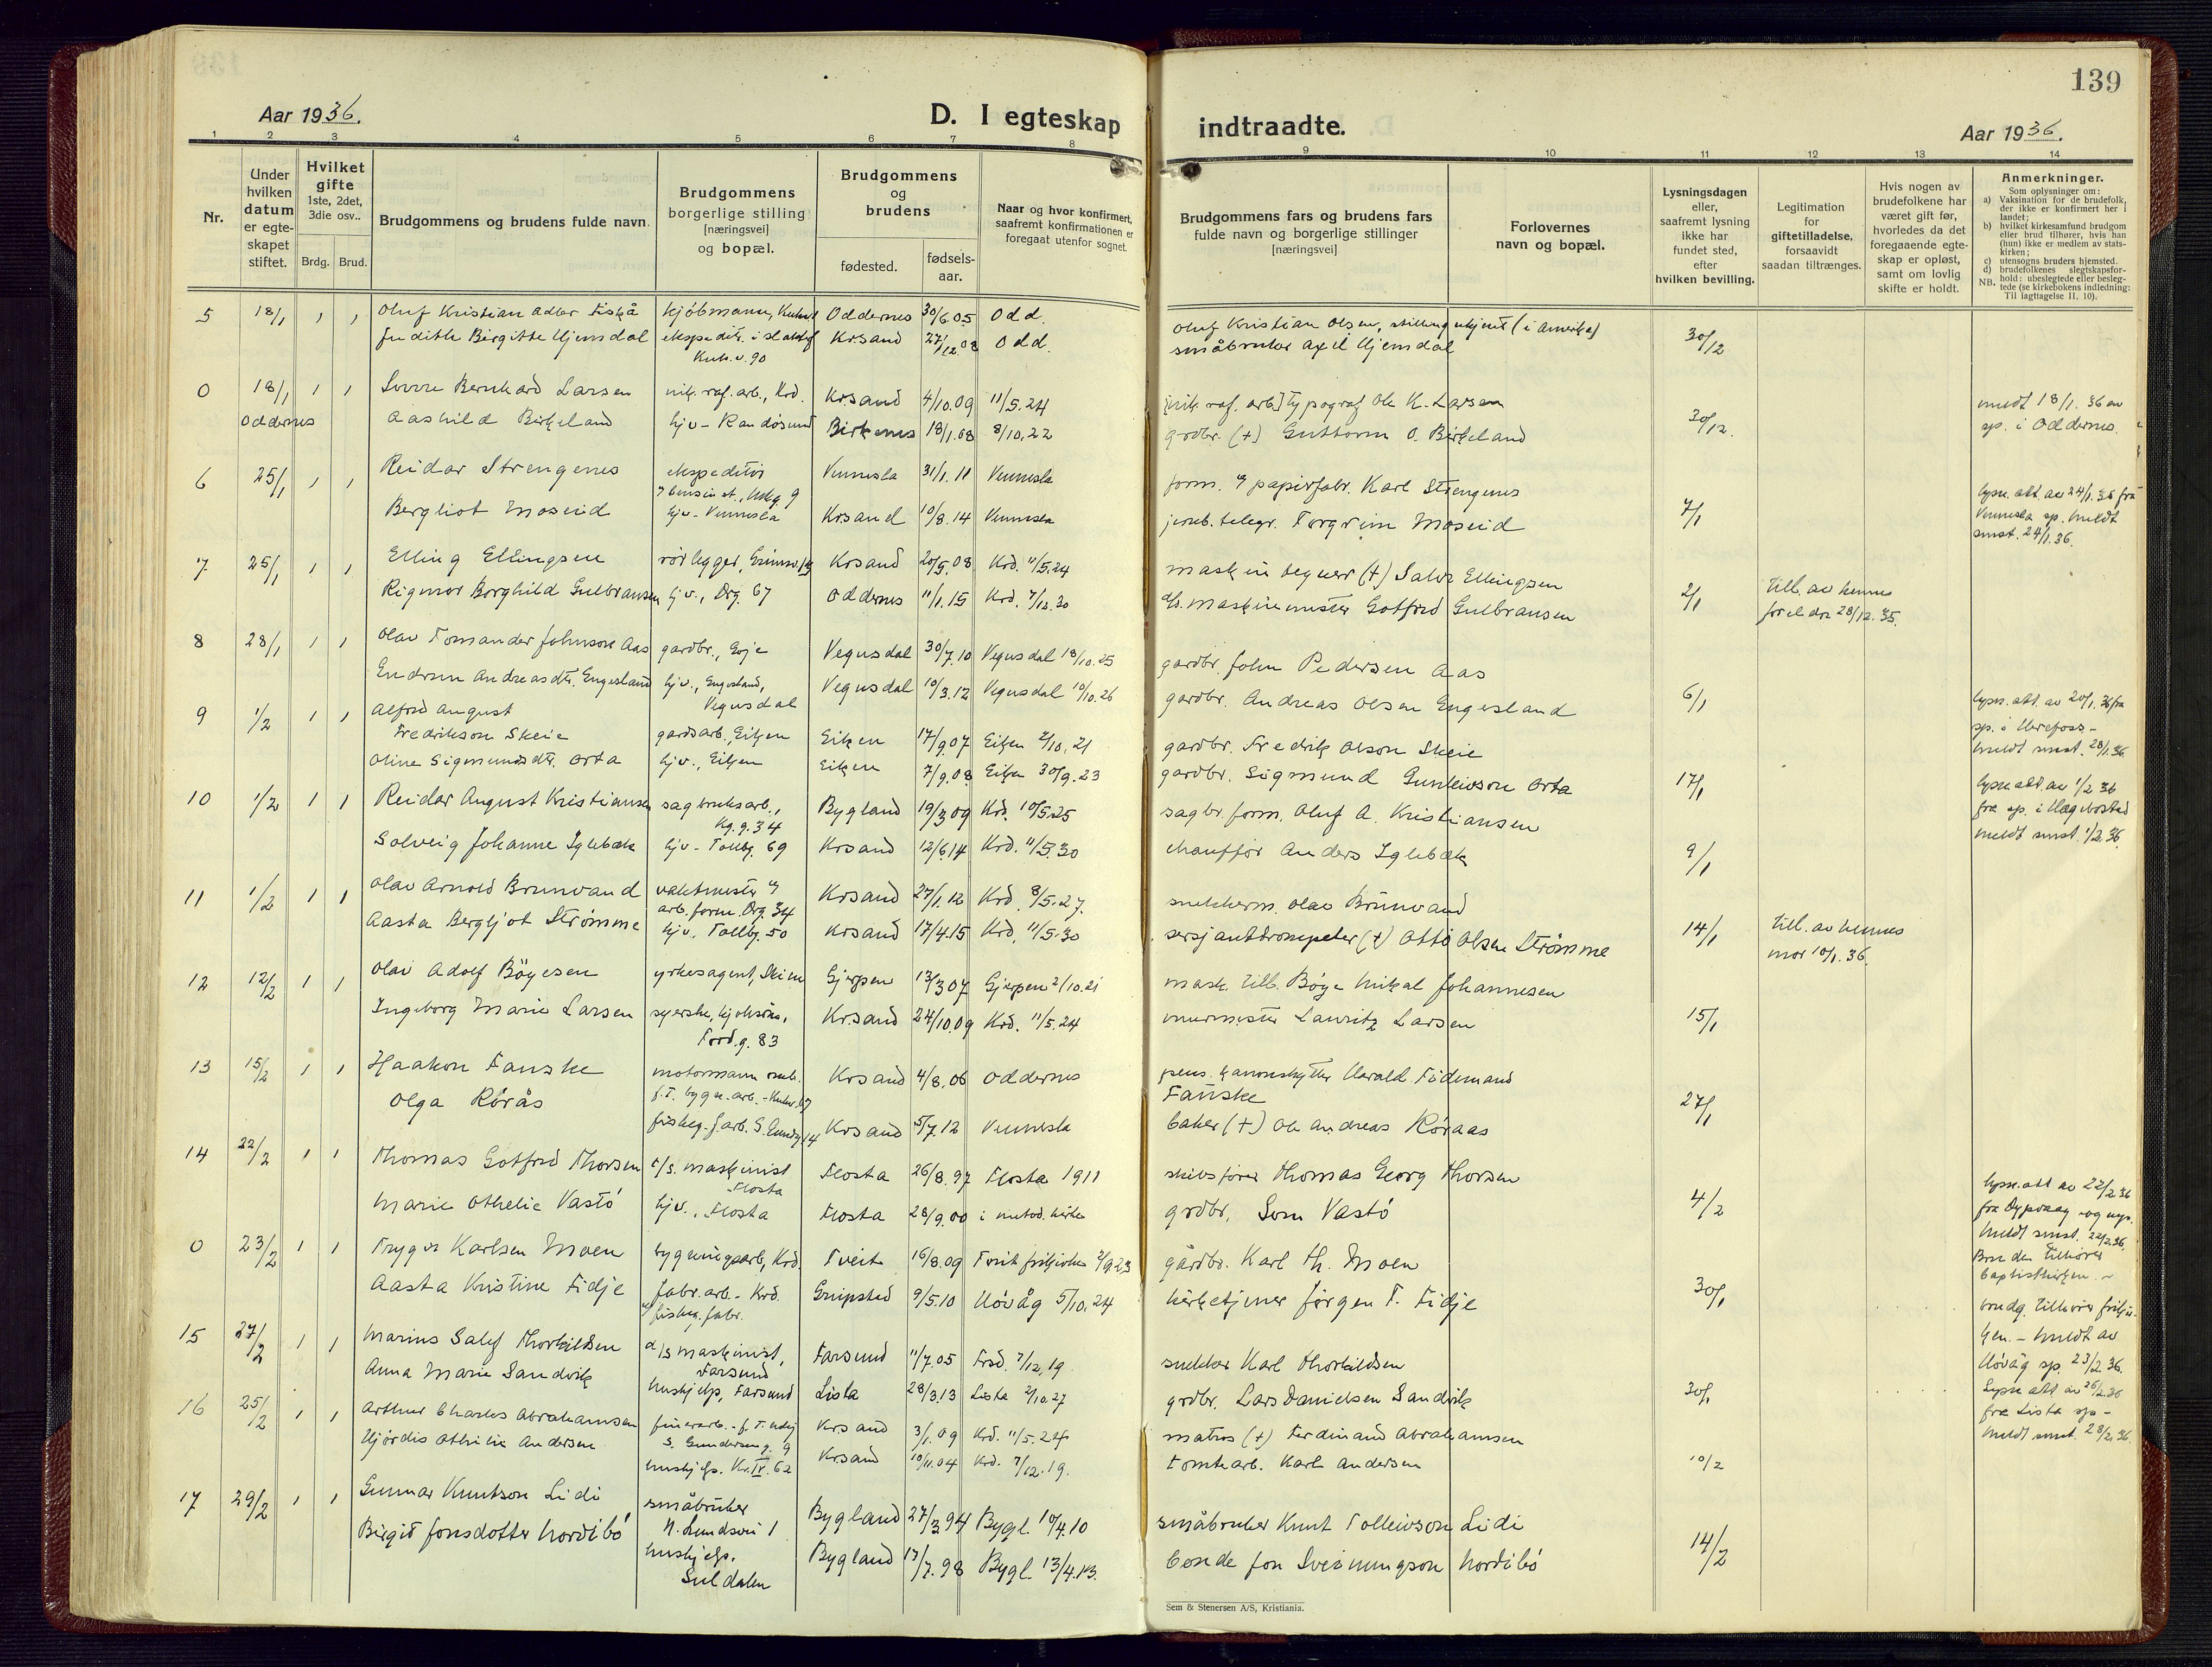 139
Aar 1936.
D. I egteskap indtraadte.
Aar 1936.
1 2 3 4 5 6 7 8 9 10 11 12 13 14
Nr.
Under hvilken datum er egteskapet stiftet.
Hvilket gifte 1ste, 2det, 3die osv..
Brdg. Brud.
Brudgommens og brudens fulde navn.
Brudgommens borgerlige stilling [næringsvei] og bopæl.
Brudgommens og brudens
fødested.
fødsels-aar.
Naar og hvor konfirmert, saafremt konfirmationen er foregaat utenfor sognet.
Brudgommens fars og brudens fars fulde navn og borgerlige stillinger [næringsvei]
Forlovernes navn og bopæl.
Lysningsdagen eller, saafremt lysning ikke har fundet sted, efter hvilken bevilling.
Legitimation for giftetilladelse, forsaavidt saadan tiltrænges.
Hvis nogen av brudefolkene har været gift før, hvorledes da det foregaaende egteskap er opløst, samt om lovlig skifte er holdt.
Anmerkninger.
Som oplysninger om:
a) Vaksination for de brudefolk, der ikke er konfirmert her i landet;
b) hvilket kirkesamfund brudgom eller brud tilhører, hvis han (hun) ikke er medlem av statskirken;
c) utensogns bruders hjemsted.
d) brudefolkenes slegtskapsforhold: ubeslegtede eller beslegtede (se kirkebokens indledning: Til iagttagelse II. 10).
NB.
5 18/1 1 1 Oluf Kristian Adler Fiskå kjøbmann, Oddernes 30/6.05 Odd. Oluf Kristian Olsen, stilling ukjent (i Amerika) 30/12
Judith Birgitte Hjemdal Krsand 27/12 08 Odd. småbruker Axel Hjemdal
0 18/1 1 1 Sverre Bernhard Larsen nik. raf. arb., Krd. Krsand 4/10.09 11/5.24 [nik. raf. arb] Typograf Ole K. Larsen 30/12. meldt 18/1. 36 av
Oddernes Aashild Birkeland hjv - Randøsund Birkenes 18/1.08 8/10.22 grdbr. (+) Guttorm O. Birkeland sp. i Oddernes.
6 25/1 1 1 Reidar Strengenes ekspeditør Vennesla 31/1.11 Vennesla form. papirfabr. Karl Strengenes 7/1 lysn. att. av 24/1.36 frå
Bergliot Moseid hjv - Vennesla Krsand 10/8.14 Vennesla jernb. telegr. Torgrim Moseid Vennesla sp. Meldt
smst. 24/1.36.
7 25/1 1 1 Elling Ellingsen rørlegger, Krsand 20/5.08 Krd. 11/5.24 maskin (+) Ellingsen 2/1 Till. av hennes
Rigmor Borghild Gulbransen hjv., Drg. 67 Oddernes 11/1.15 Krd. 7/12.30 maskinmester Gotfred Gulbransen foreldre 28/12.35.
8 28/1 1 1 Olav Tomander Johnson Aas gardbr., Evje Vegusdal 30/7.10 Vegusdal 18/10.25 gardbr. John Pedersen Aas 6/1
Gudrun Andreasdtr. Engesland hjv., Engesland, Vegusdal 10/3.12 Vegusdal 10/10.26 gardbr. Andreas Olsen Engesland lysn. att. av 20/1.36 fra
Vegusdal sp. i Herefoss -
9 1/2 1 1 Alfred August meldt smst. 28/1.36
Fredrikson Skeie gardsarb., Eiken Eiken 17/9.07 Eiken 2/10.21 gardbr. Fredrik Olson Skeie 17/1
Oline Sigmundsdtr. Orta hjv., Eiken Eiken 7/9.08 Eiken 30/9.23 gardbr. Sigmund Gunleivson Orta lysn. att. av 1/2 36
10 1/2 1 1 Reidar August Kristiansen sagbruksarb., Bygland 19/3 09 Krd. 10/5.25 sagbr. form. Oluf A. Kristiansen 9/1 fra sp. i Hægebostad
Kg. g. 34 meldt smst. 1/2.36.
Solveig Johanne Iglebæk hjv - Tollbg. 69 Krsand 12/6.14 Krd. 11/5.30 chauffør Anders Iglebæk
11 1/2 1 1 Olav Arnold Brunvand vaktmester Krsand 27/1.12 Krd. 8/5.27. snekkerm. Olav Brunvand 14/1 Till. av hennes
arb. form. Drg. 34
Aasta Bergljot Strømme hjv. Tollbg. 50 Krsand 17/4.15 Krd. 11/5.30 sersjanttrompeter (+) Otto Olsen Strømme mor 10/1.36.
12 12/2 1 1 Olav Adolf Bøgesen yrkesagent, Skien Gjerpen 13/3 07 Gjerpen 2/10.21 mask. till. Bøge Mikal Johannesen 15/1
Ingeborg Marie Larsen syerske, Krsand 24/10.09 Krd. 11/5.24 murmester Lauritz Larsen
83
13 15/2 1 1 Haakon Fanske motormann Krsand 4/8.06 Oddernes pens. kanonskytter Harald Fidemand 27/1
Olga Rørås f. T. bygn. arb. Fanske
Krsand 5/7.12 Vennesla baker (+) Ole Andreas Røraas
14 22/2 1 1 Thomas Gotfred Thorsen maskinist Flosta 26/8.97 Flosta 1911 skibsfører Thomas Georg Thorsen 4/2 lysn. att av 22/2.36
Flosta
Marie Othelie Vastø hjv., Flosta Flosta 28/9.00 i metod. kirke grdbr. Vastø fra Dypvaag
meldt smst. 22/2.36.
0 23/2 1 1 Trygve Karlsen Moen bygningsarb, Krd. Tveit 16/8.09 Tveit frikirke 2/9 23 gårdbr. Karl Th. Moen 30/1 Bruden tilhører
Baptistkirken. -
Aasta Kristine Fidje fabr. arb. - Krd. Gripsted 9/5.10 Høvåg 5/10.24 kirketjener Jørgen T. Fidje brudg. tilhører frikir-
ken. - meldt av
15 27/2 1 1 Marius Salef Thorkildsen maskinist, Farsund 11/7.05 Frsd. 7/12.19. snekker Karl Thorkildsen 30/1 Høvåg sp. 23/2.36.
Farsund
Anna Marie Sandvik hushjelp, Farsund Lista 28/3.13 Lista 2/10.27 grdbr. Lars Danielsen Sandvik Lysn. att av 26/2.36
16 25/2 1 1 Arthur Charles Abrahamsen Krsand 3/1.09 Krd. 11/5.24 matros (+) Ferdinand Abrahamsen 10/2 fra Lista sp -
meldt smst. 28/2.36.
Hjørdis Othilie Andersen hushjelp. Kr. IV. 62 Krsand 10/11.04 Krd. 7/12.19. Tomtearb. Karl Andersen
17 29/2 1 1 Gunnar Knutson Lidi småbruker Bygland 27/3 94 Bygl. 10/4.10 småbruker Knut Tolleivson Lidi 14/2
Birgit Jonsdotter Nordibø hushjelp. Bygland 17/7.98 Bygl. 13/4.13. bonde Jon Sveinungson Nordibø
Suldalen
Sem & Stenersen A/S, Kristiania.